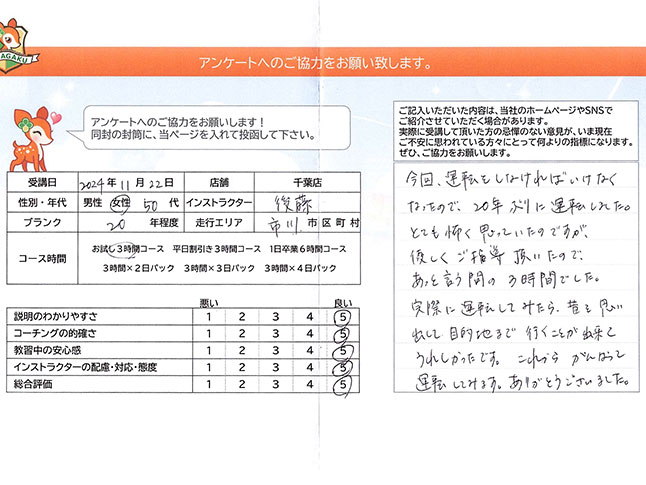 AGAKU
アンケートへのご協力をお願い致します。
アンケートへのご協力をお願いします！
同封の封筒に、当ページを入れて投函して下さい。
ご記入いただいた内容は、当社のホームページやSNSで
ご紹介させていただく場合があります。
実際に受講して頂いた方の忌憚のない意見が、いま現在
ご不安に思われている方々にとって何よりの指標になります。
ぜひ、ご協力をお願いします。
受講日 2024年 11月 22日 店舗 千葉店
性別・年代 男性 女性 50 代 インストラクター 後藤
ブランク 20 年程度 走行エリア 市川 市区町村
コース時間 お試し3時間コース 平日割引き3時間コース 1日卒業6時間コース
3時間×2日パック 3時間×3日パック 3時間×4日パック
悪い 良い
説明のわかりやすさ 1 2 3 4 5
コーチングの的確さ 1 2 3 4 5
教習中の安心感 1 2 3 4 5
インストラクターの配慮・対応・態度 1 2 3 4 5
総合評価 1 2 3 4 5
今回、運転をしなければいけなく
なったので、20年ぶりに運転しました。
とても怖く思っていたのですが、
優しくご指導頂いたので、
あっと言う間の3時間でした。
実際に運転してみたら、昔を思い
出して目的地まで行くことが出来て
うれしかったです。これから がんばって
運転してみます。ありがとうございました。